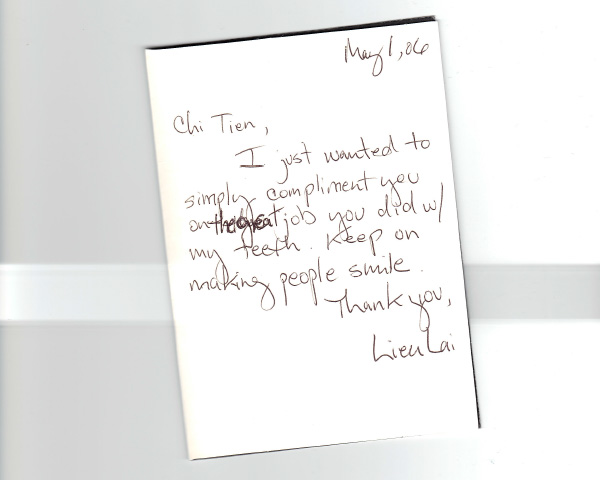 May 1, 06
Chi Tien,
I just wanted to
simply compliment you
on the great job you did w/
my teeth. Keep on
making people smile.
Thank you,
Lien Lai